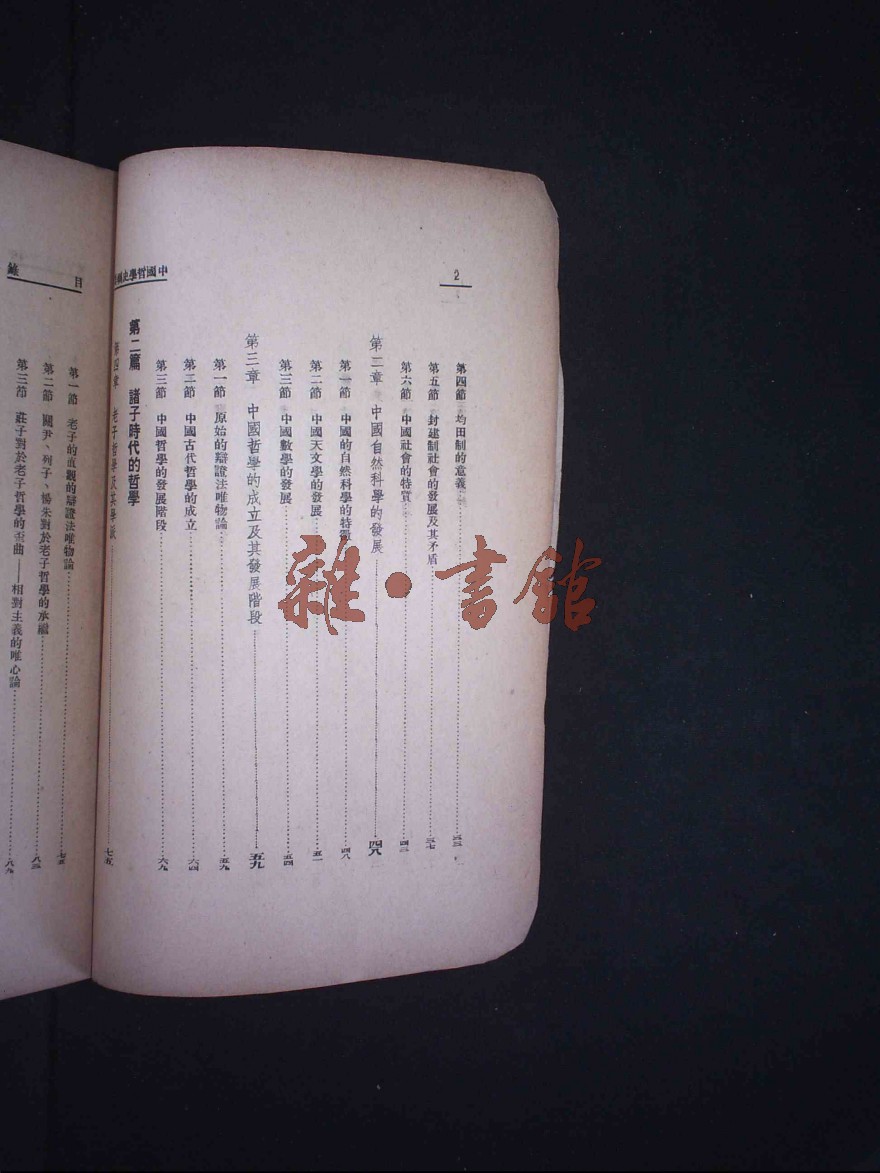 2
中國哲學史綱
第四節 均田制的意義 三三
第五節 封建制社會的發展及其矛盾 三七
第六節 中國社會的特質 四二
第二章 中國自然科學的發展 四八
第一節 中國的自然科學的特徵 四八
第二節 中國天文學的發展 五一
第三節 中國數學的發展 五四
第三章 中國哲學的成立及其發展階段 五九
第一節 原始的辯證法唯物論 五九
第二節 中國古代哲學的成立 六四
第三節 中國哲學的發展階段 六九
第二篇 諸子時代的哲學
第四章 老子哲學及其學派 七五
目錄
第一節 老子的直觀的辯證法唯物論 七五
第二節 關尹、列子、楊朱對於老子哲學的承繼 八三
第三節 莊子對於老子哲學的歪曲——相對主義的唯心論 八九
雜·書館